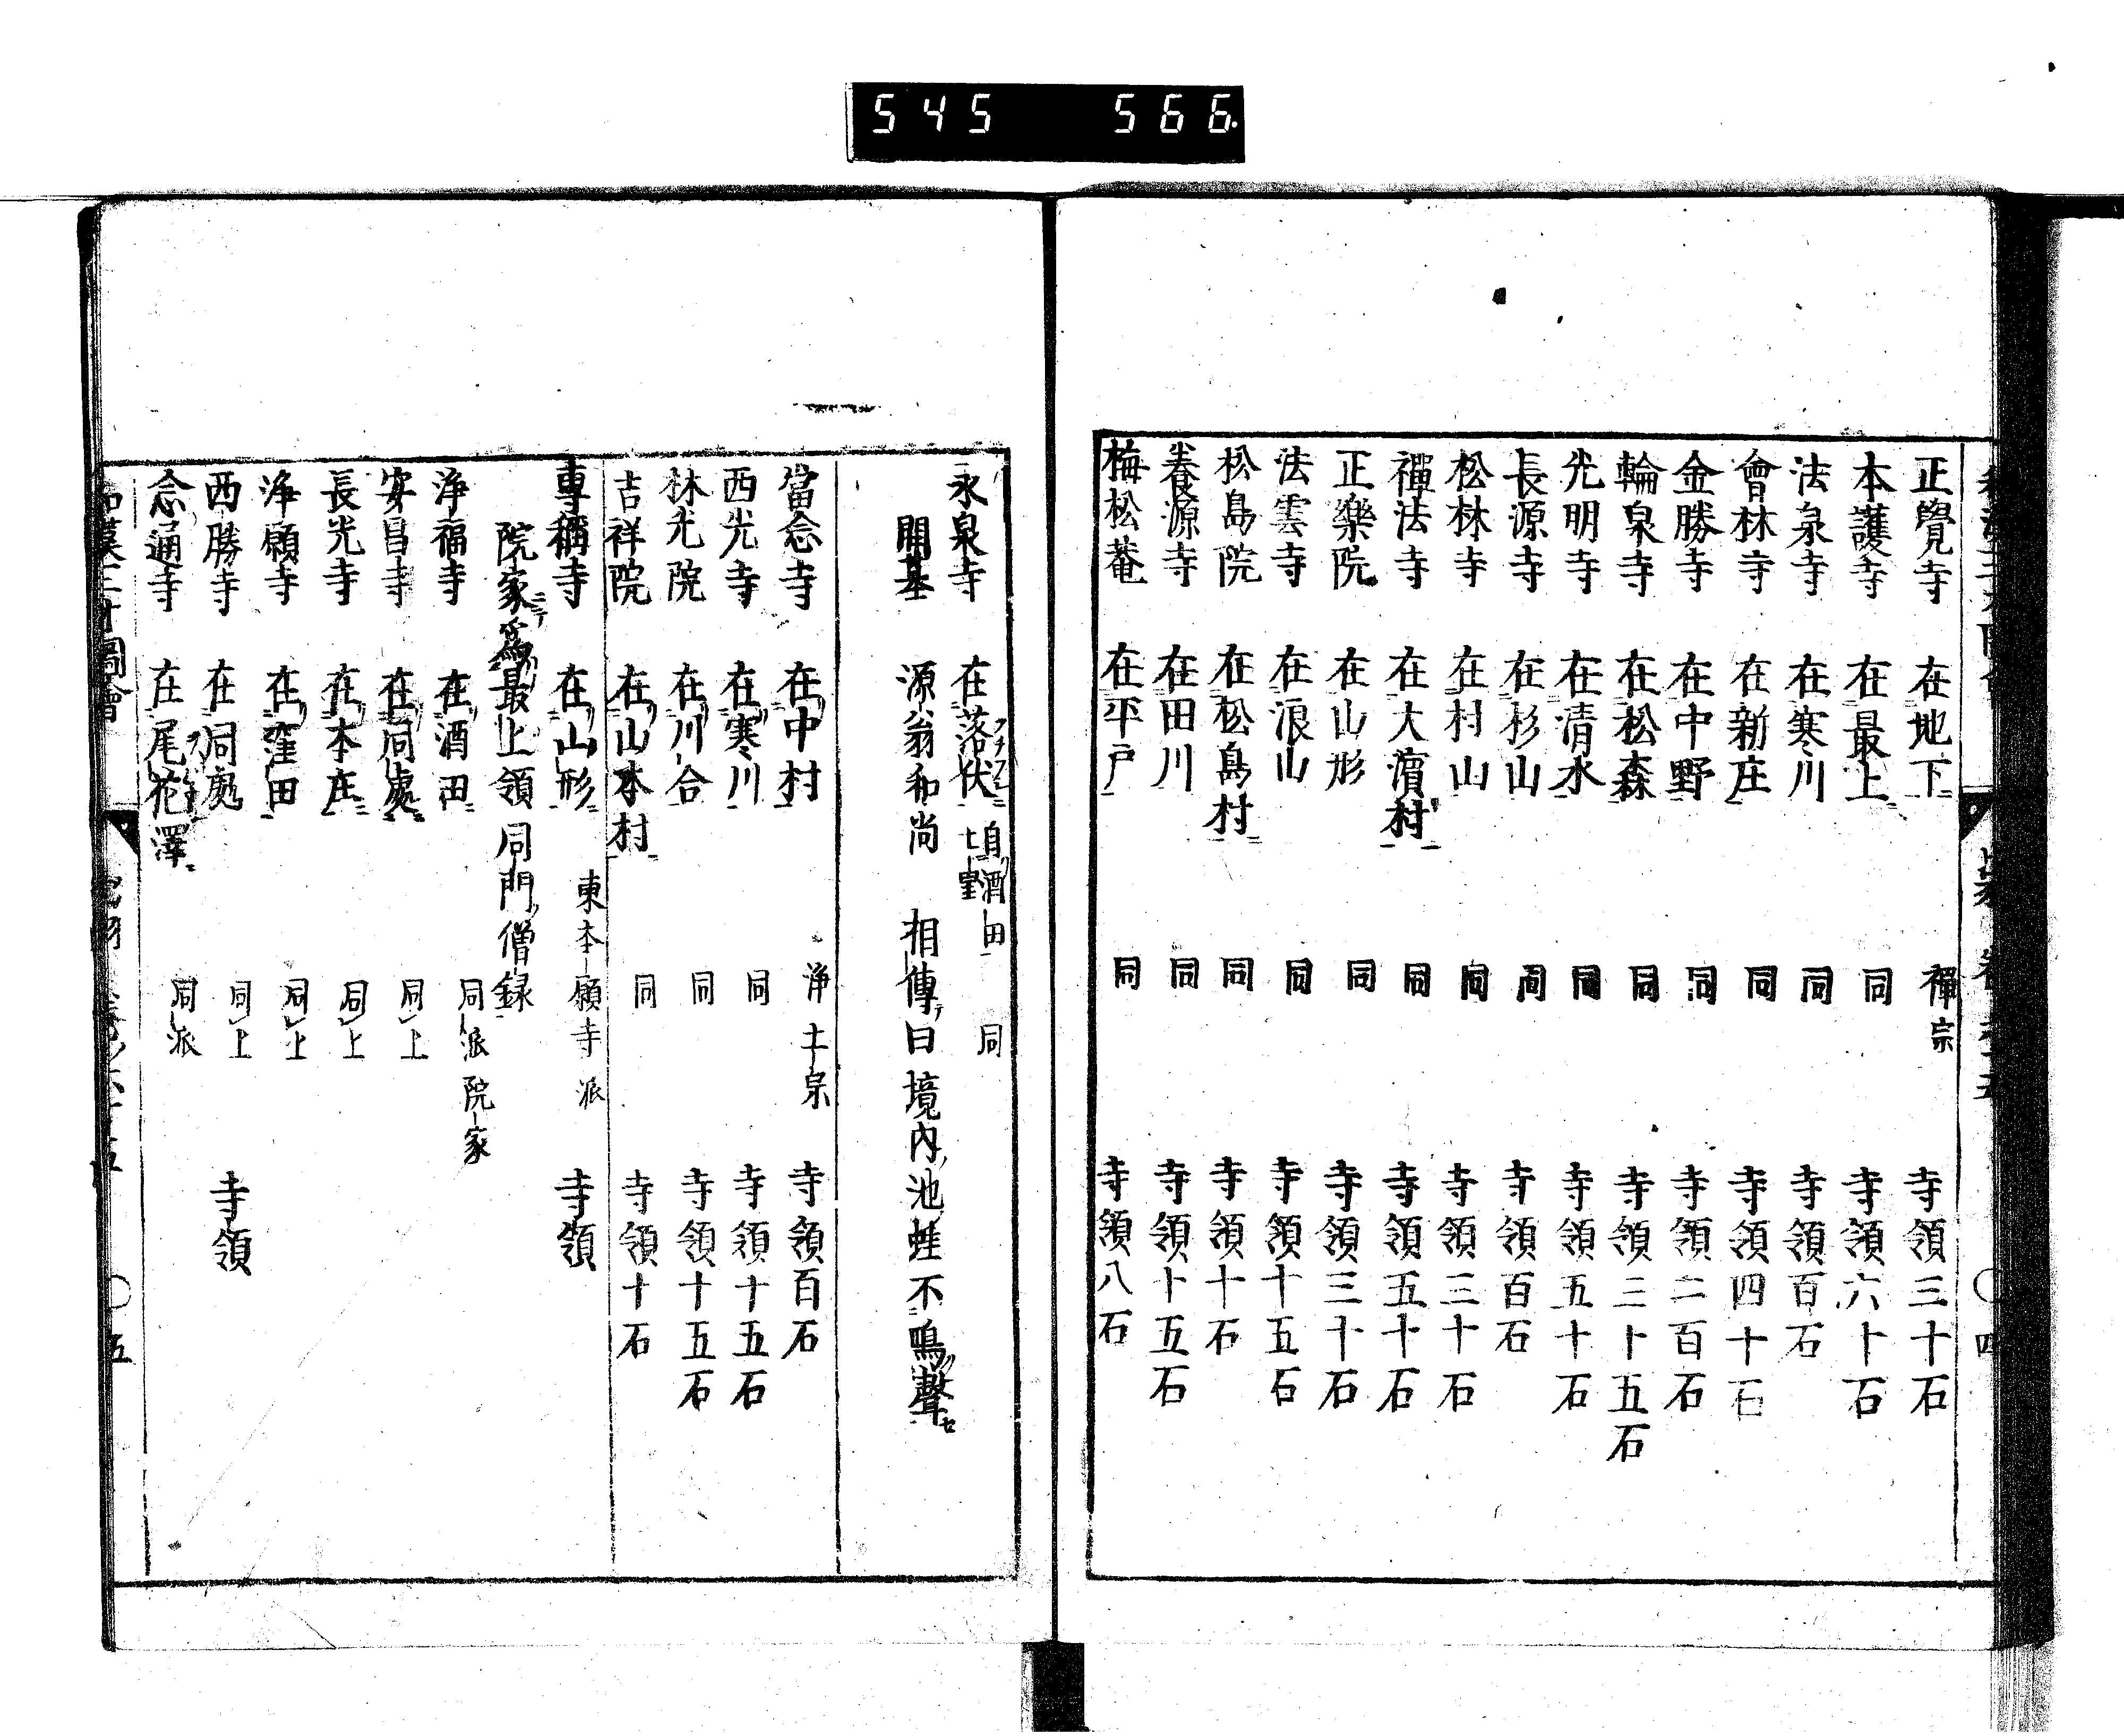 545 566
正覺寺 在地下 禪宗 寺領三十石
本護寺 在最上 同 寺領六十石
法泉寺 在寒川 同 寺領百石
會林寺 在新庄 同 寺領四十石
金勝寺 在中野 同 寺領二百石
輪泉寺 在松森 同 寺領三十五石
光明寺 在清水 同 寺領五十石
長源寺 在杉山 同 寺領百石
松林寺 在村山 同 寺領三十石
禪法寺 在大濵村 同 寺領五十石
正樂院 在山形 同 寺領三十石
法雲寺 在浪山 同 寺領十五石
松島院 在松島村 同 寺領十石
春源寺 在田川 同 寺領十五石
梅松菴 在平戸 同 寺領八石
永泉寺 在落伏 自酒田七里 同
開基 源翁和尚 相傳曰境内池蛙不鳴聲
當念寺 在中村 浄土宗 寺領百石
西光寺 在寒川 同 寺領十五石
林光院 在川合 同 寺領十五石
吉祥院 在山本村 同 寺領十石
專稱寺 在山形 東本願寺派 寺領
院家爲最上領同門僧録
浄福寺 在酒田 同派院家
安昌寺 在同處 同上
長光寺 在本庄 同上
浄願寺 在窪田 同上
西勝寺 在同處 同上 寺領
念通寺 在尾花澤 同派